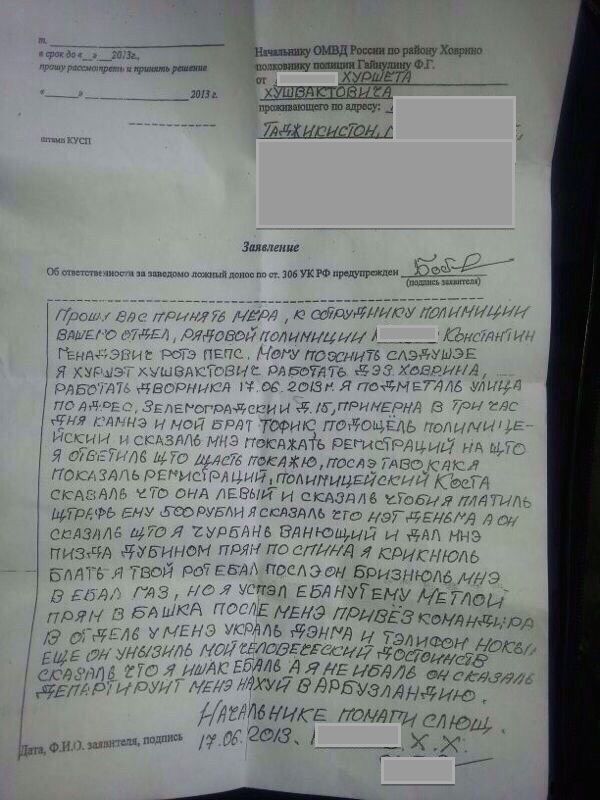 т.
в срок до «__» ___2013г.,
прошу рассмотреть и принять решение
«______» ______________ 2013 г.
штамп КУСП
Начальнику ОМВД России по району Ховрино
полковнику полиции Гайнулину Ф.Г.
от ХУРШЕТА
ХУШВАКТОВИЧА
проживающего по адресу:
ТАДЖИКИСТОН,
Заявление
Об ответственности за заведомо ложный донос по ст. 306 УК РФ предупрежден
(подпись заявителя)
ПРОШУ ВАС ПРИНЯТЬ МЕРА, К СОТРУДНИКУ ПОЛИМИЦИИ
ВАШЕГО ОТДЕЛ, РЯДОВОЙ ПОЛИМИЦИИ КОНСТАНТИН
ГЕНАДЭВИЧ РОТЭ ПЕПС. МОМУ ПОЭСНИТЬ СЛЭДУШЭЕ
Я ХУРШЭТ ХУШВАКТОВИЧ РАБОТАТЬ ДЭЗ ХОВРИНА,
РАБОТАТЬ ДВОРНИКА 17.06.2013м. Я ПОДМЕТАЛЬ УЛИЦА
ПО АДРЕС, ЗЕЛЕМОГРАДСКИЙ Д.15, ПРИМЕРНА В ТРИ ЧАС
ДНЯ КАМНЭ И МОЙ БРАТ ТОФИК ПОДОЩЁЛЬ ПОЛИМИЦЕ-
ЙСКИЙ И СКАЗАЛЬ МНЭ ПОКАЖАТЬ РЕГИСТРАЦИЙ НА ЩТО
Я ОТВЕТИЛЬ ЩТО ЩАСТЬ ПОКАЖЮ, ПОСЛЭ ТАВО КАК Я
ПОКАЗАЛЬ РЕМИСТРАЦИЙ, ПОЛИМИЦЕЙСКИЙ КОСТА
СКАЗАЛЬ ЧТО ОНА ЛЕВЫЙ И СКАЗАЛЬ ЧТОБИ Я ПЛАТИЛЬ
ЩТРАФЬ ЕМУ 500 РУБЛИ Я СКАЗАЛЬ ЧТО НЭТ ДЕНЬМА А ОН
СКАЗАЛЬ ЩТО Я ЧУРБАНЬ ВАНЮЩИЙ И ДАЛ МНЭ
ПИЗДА ДУБИНОМ ПРЯМ ПО СПИНА Я КРИКНЮЛЬ
БЛАТЬ Я ТВОЙ РОТ ЕБАЛ ПОСЛЭ ОН БРИЗНЮЛЬ МНЭ
В ЕБАЛ ГАЗ, НО Я УСПЭЛ ЕБАНУТ ЕМУ МЕТЛОЙ
ПРЯМ В БАШКА ПОСЛЕ МЕНЭ ПРИВЁЗ КОМАНДИРА
В ОТДЕЛЬ У МЕНЭ УКРАЛЬ ДЭНМА И ТЭЛИФОН НОКЫ
ЕЩЕ ОН УНЫЗИЛЬ МОЙ ЧЕЛОВЕЧЕСКИЙ ДОСТОИНСТВ
СКАЗАЛЬ ЧТО Я ИШАК ЕБАЛЬ А Я НЕ ИБАЛЬ ОН СКАЗАЛЬ
ДЕПАРТИРУИТ МЕНЭ НАХУЙ В АРБУЗЛАНДИЮ.
НАЧАЛЬНИКЕ ПОМАГИ СЛЮЩ.
Дата, Ф.И.О. заявителя, подпись
17.06.2013. Х.Х.